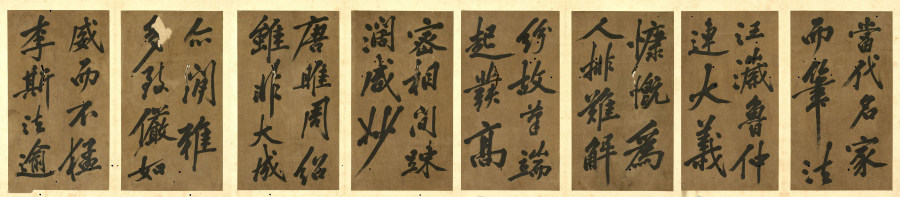 當代名家
而筆法
汪濊魯仲
連大義
慷慨為
人排難解
紛故筆端
起高
密相間踈
闊盛妙
唐睢周紹
雖非大成
亦閒雅
多致儼如
威而不猛
李斯法逾